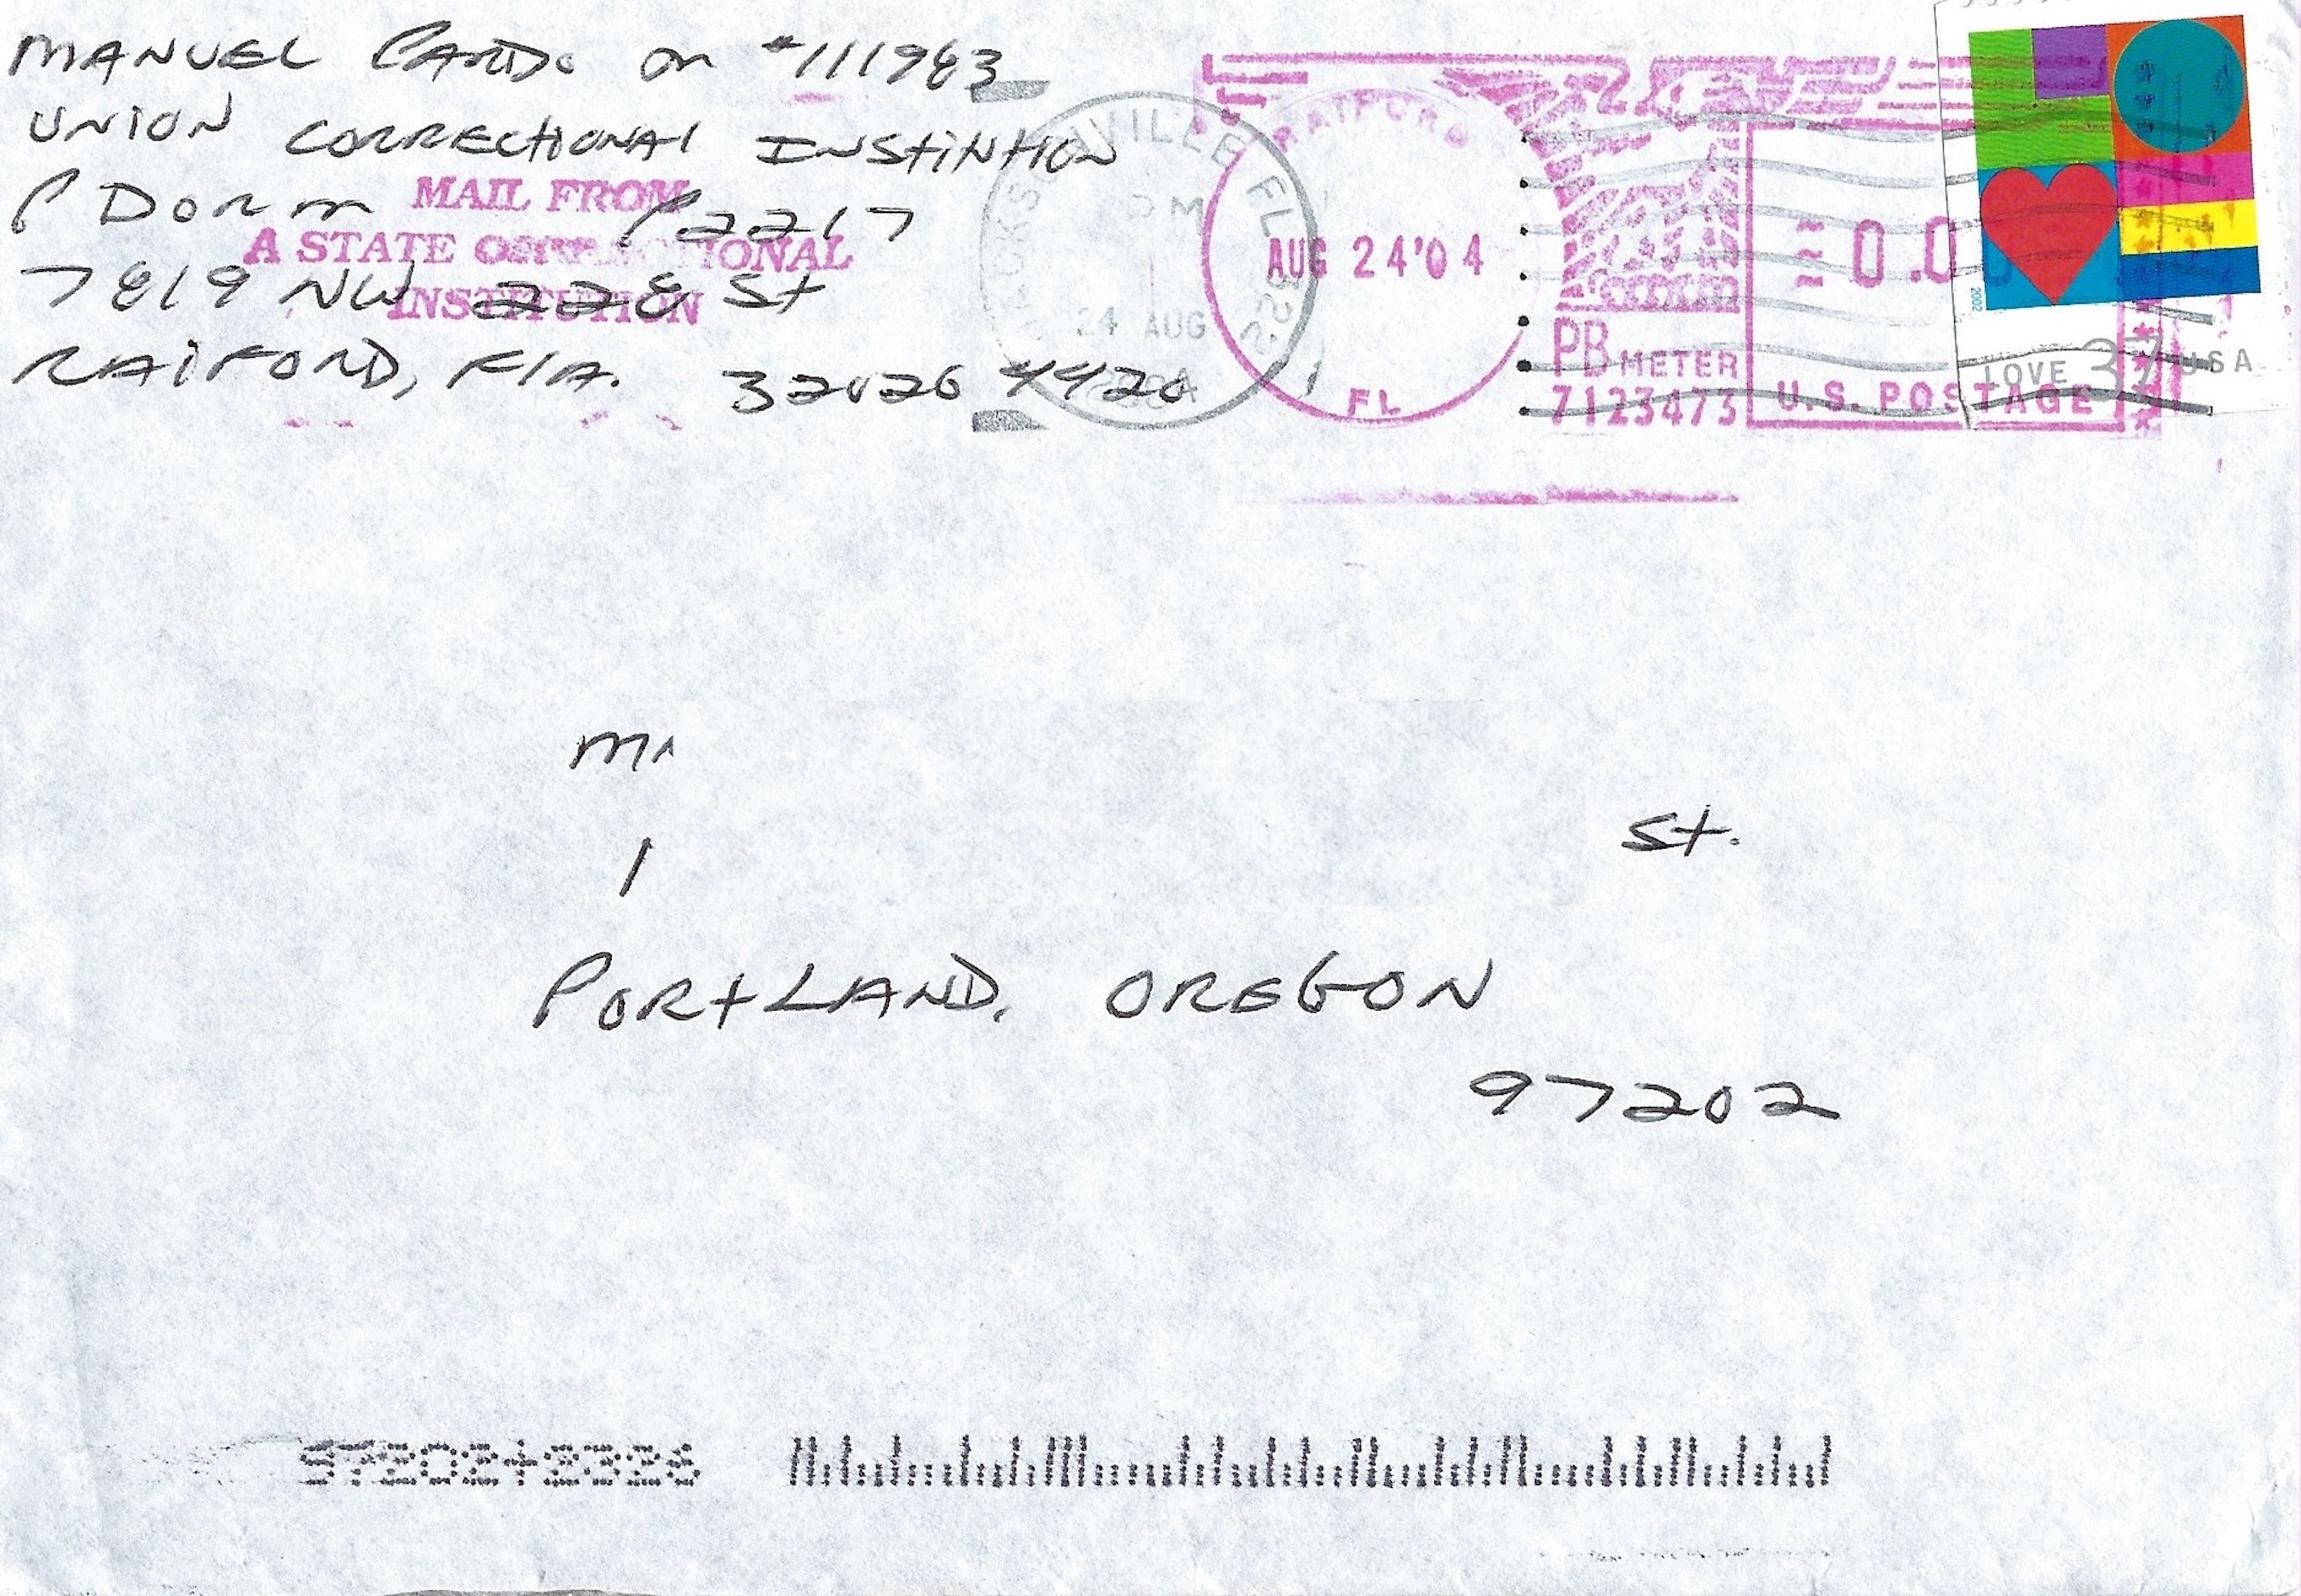 MANUEL PARDO OR #111983
UNION CORRECTIONAL INSTINTION
P DORM P2217
7819 NW 228 St
RAIFORD, FlA. 32026 4420
MAIL FROM
A STATE CORRECTIONAL
INSTITUTION
JACKSONVILLE FL 322
PM
24 AUG
RAIFORD
AUG 24'04
FL
PB METER
7123473
0.0
U.S. POSTAGE
2002
LOVE 37 USA
St.
PORtLAND, OREGON
97202